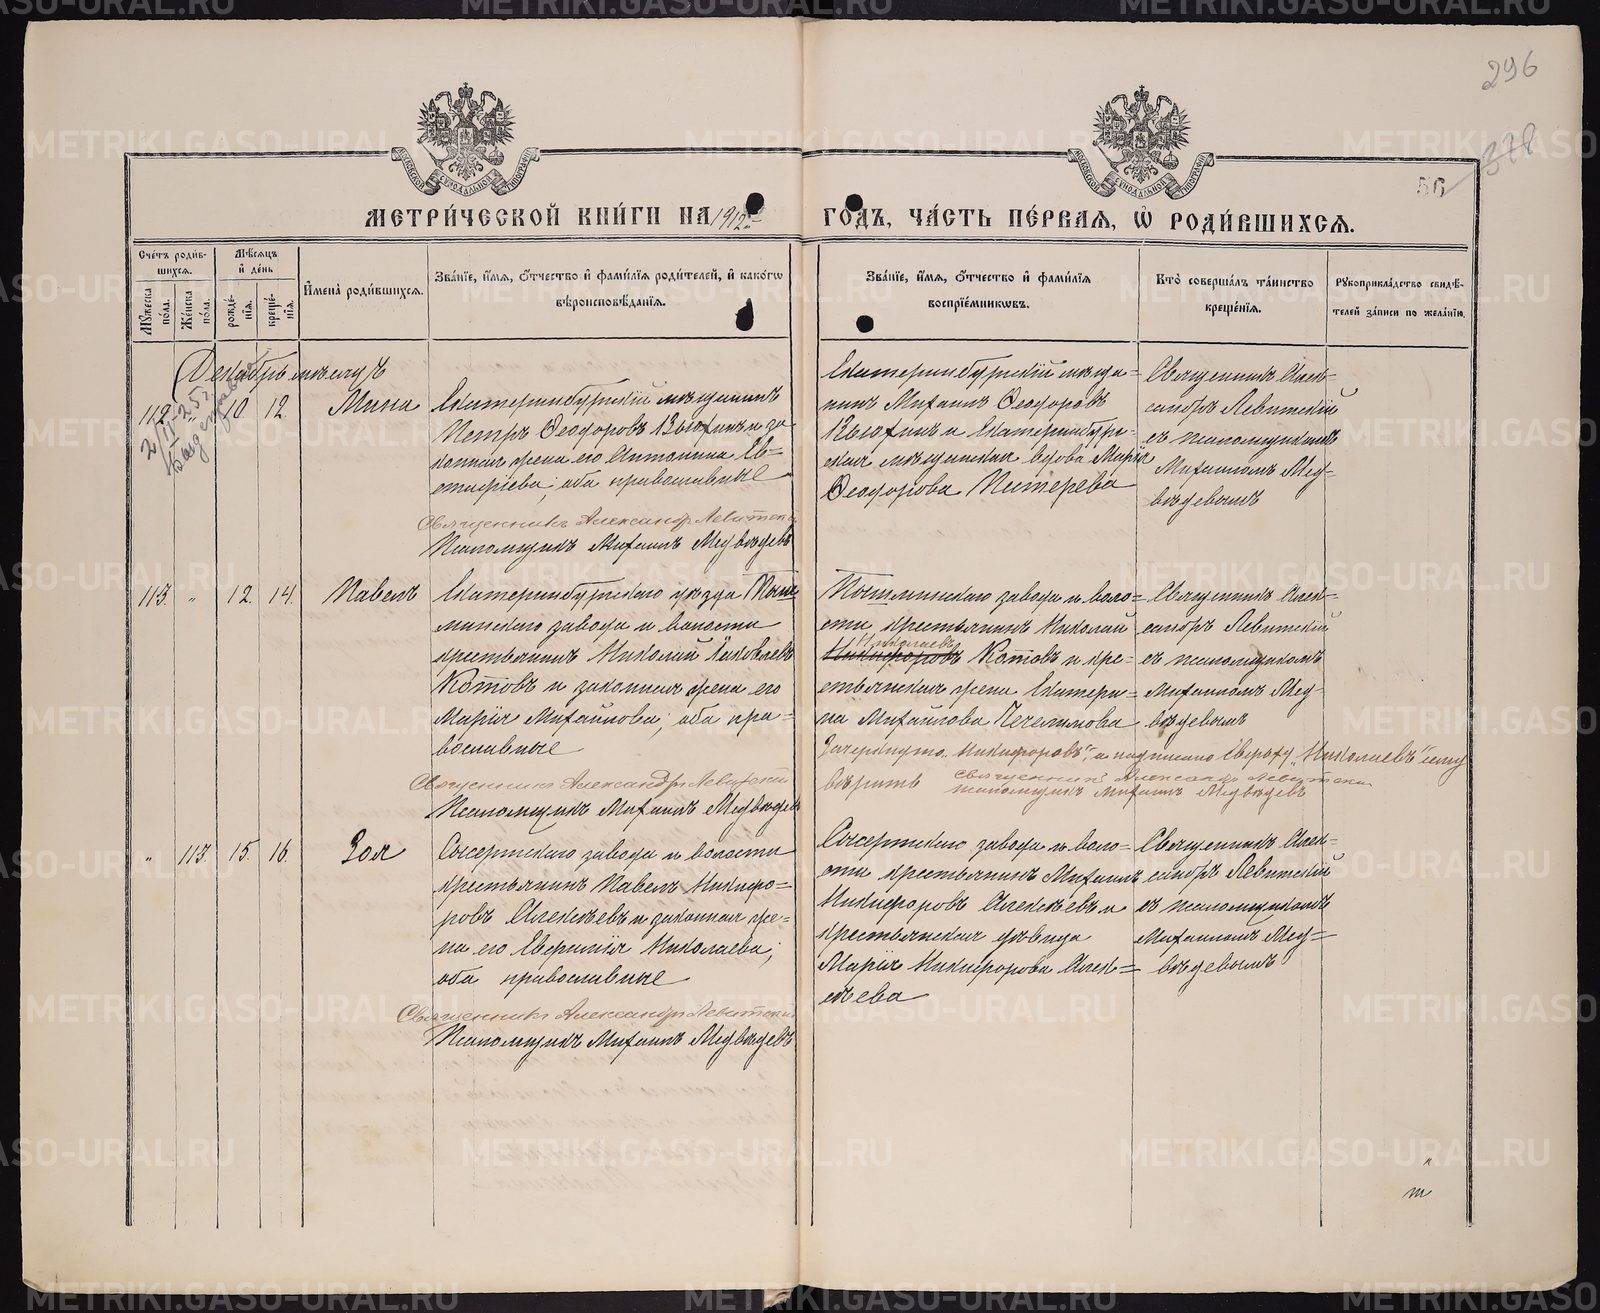 296
378
56
МЕТРИ́ЧЕСКОЙ КНИ́ГИ НА 1912й ГО́ДЪ, ЧА́СТЬ ПЕ́РВАЯ, Ѡ РОДИ́ВШИХСЯ.
Сче́тъ роди́вшихся.
Му́жеска по́ла.
Же́нска по́ла.
Мѣ́сяцъ и҆ де́нь
рожде́нїѧ.
креще́нїѧ.
И҆мена̀ роди́вшихся.
Зва́нїе, и҆́мѧ, ѻ҆́тчество и҆ фами́лїѧ роди́телей, и҆ како́гѡ
вѣроисповѣ́данїѧ.
Зва́нїе, и҆́мѧ, ѻ҆́тчество и҆ фами́лїѧ
воспрїе́мникѡвъ.
Кто̀ соверша́лъ та́инство
креще́нїѧ.
Рꙋкоприкла́дство свидѣ́-
телей за́писи по жела́нїю.
Декабрь мѣсяцъ
112. " 10 12. Мина
Екатеринбургскій мѣщанинъ
Петръ Ѳеодоровъ и за
конная жена его Антонина Ев-
стафіева; оба православные
Священникъ Александр Левитскій
Псаломщикъ Михаилъ Медвѣдевъ
Екатеринбургскій мѣща=
нинъ Михаилъ Ѳеодоровъ
и Екатеринбург-
ская мѣщанская вдова Марія
Ѳеодорова Питерева
Священникъ Алек-
сандръ Левитскій
съ псаломщикомъ
Михаиломъ Мед-
вѣдевымъ
113. " 12. 14. Павелъ
Екатеринбургскаго уѣзда Пыш
минскаго завода и волости
крестьянинъ Николай Яковлевъ
Котовъ и законная жена его
Марія Михайлова; оба пра=
вославные
Священникъ Александръ Левитскій
Псаломщикъ Михаилъ Медвѣдевъ
Пышминскаго завода и воло=
сти крестьянинъ Николай
Николаевъ
Никифоровъ Котовъ и кре=
стьянская жена Екатери=
на Михайлова
Священникъ Алек-
сандръ Левитскій
съ псаломщикомъ
Михаиломъ Мед-
вѣдевымъ
Зачеркнуто „Никифоровъ", а надписано сверху „Николаевъ" сему
вѣрить Священникъ Александръ Левитскій
псаломщикъ Михаилъ Медвѣдевъ
" 113. 15. 16. Зоя
Сысертскаго завода и волости
крестьянинъ Павелъ Никифо=
ровъ Алексѣевъ и законная же=
на его Евфимія Николаева;
оба православные
Священникъ Александръ Левитскій
Псаломщикъ Михаилъ Медвѣдевъ
Сысертскаго завода и воло=
сти крестьянинъ Михаилъ
Никифоровъ Алексѣевъ и
крестьянская дѣвица
Марія Никифорова Алек=
сѣева
Священникъ Алек-
сандръ Левитскій
съ псаломщикомъ
Михаиломъ Мед=
вѣдевымъ
METRIKI.GASO-URAL.RU